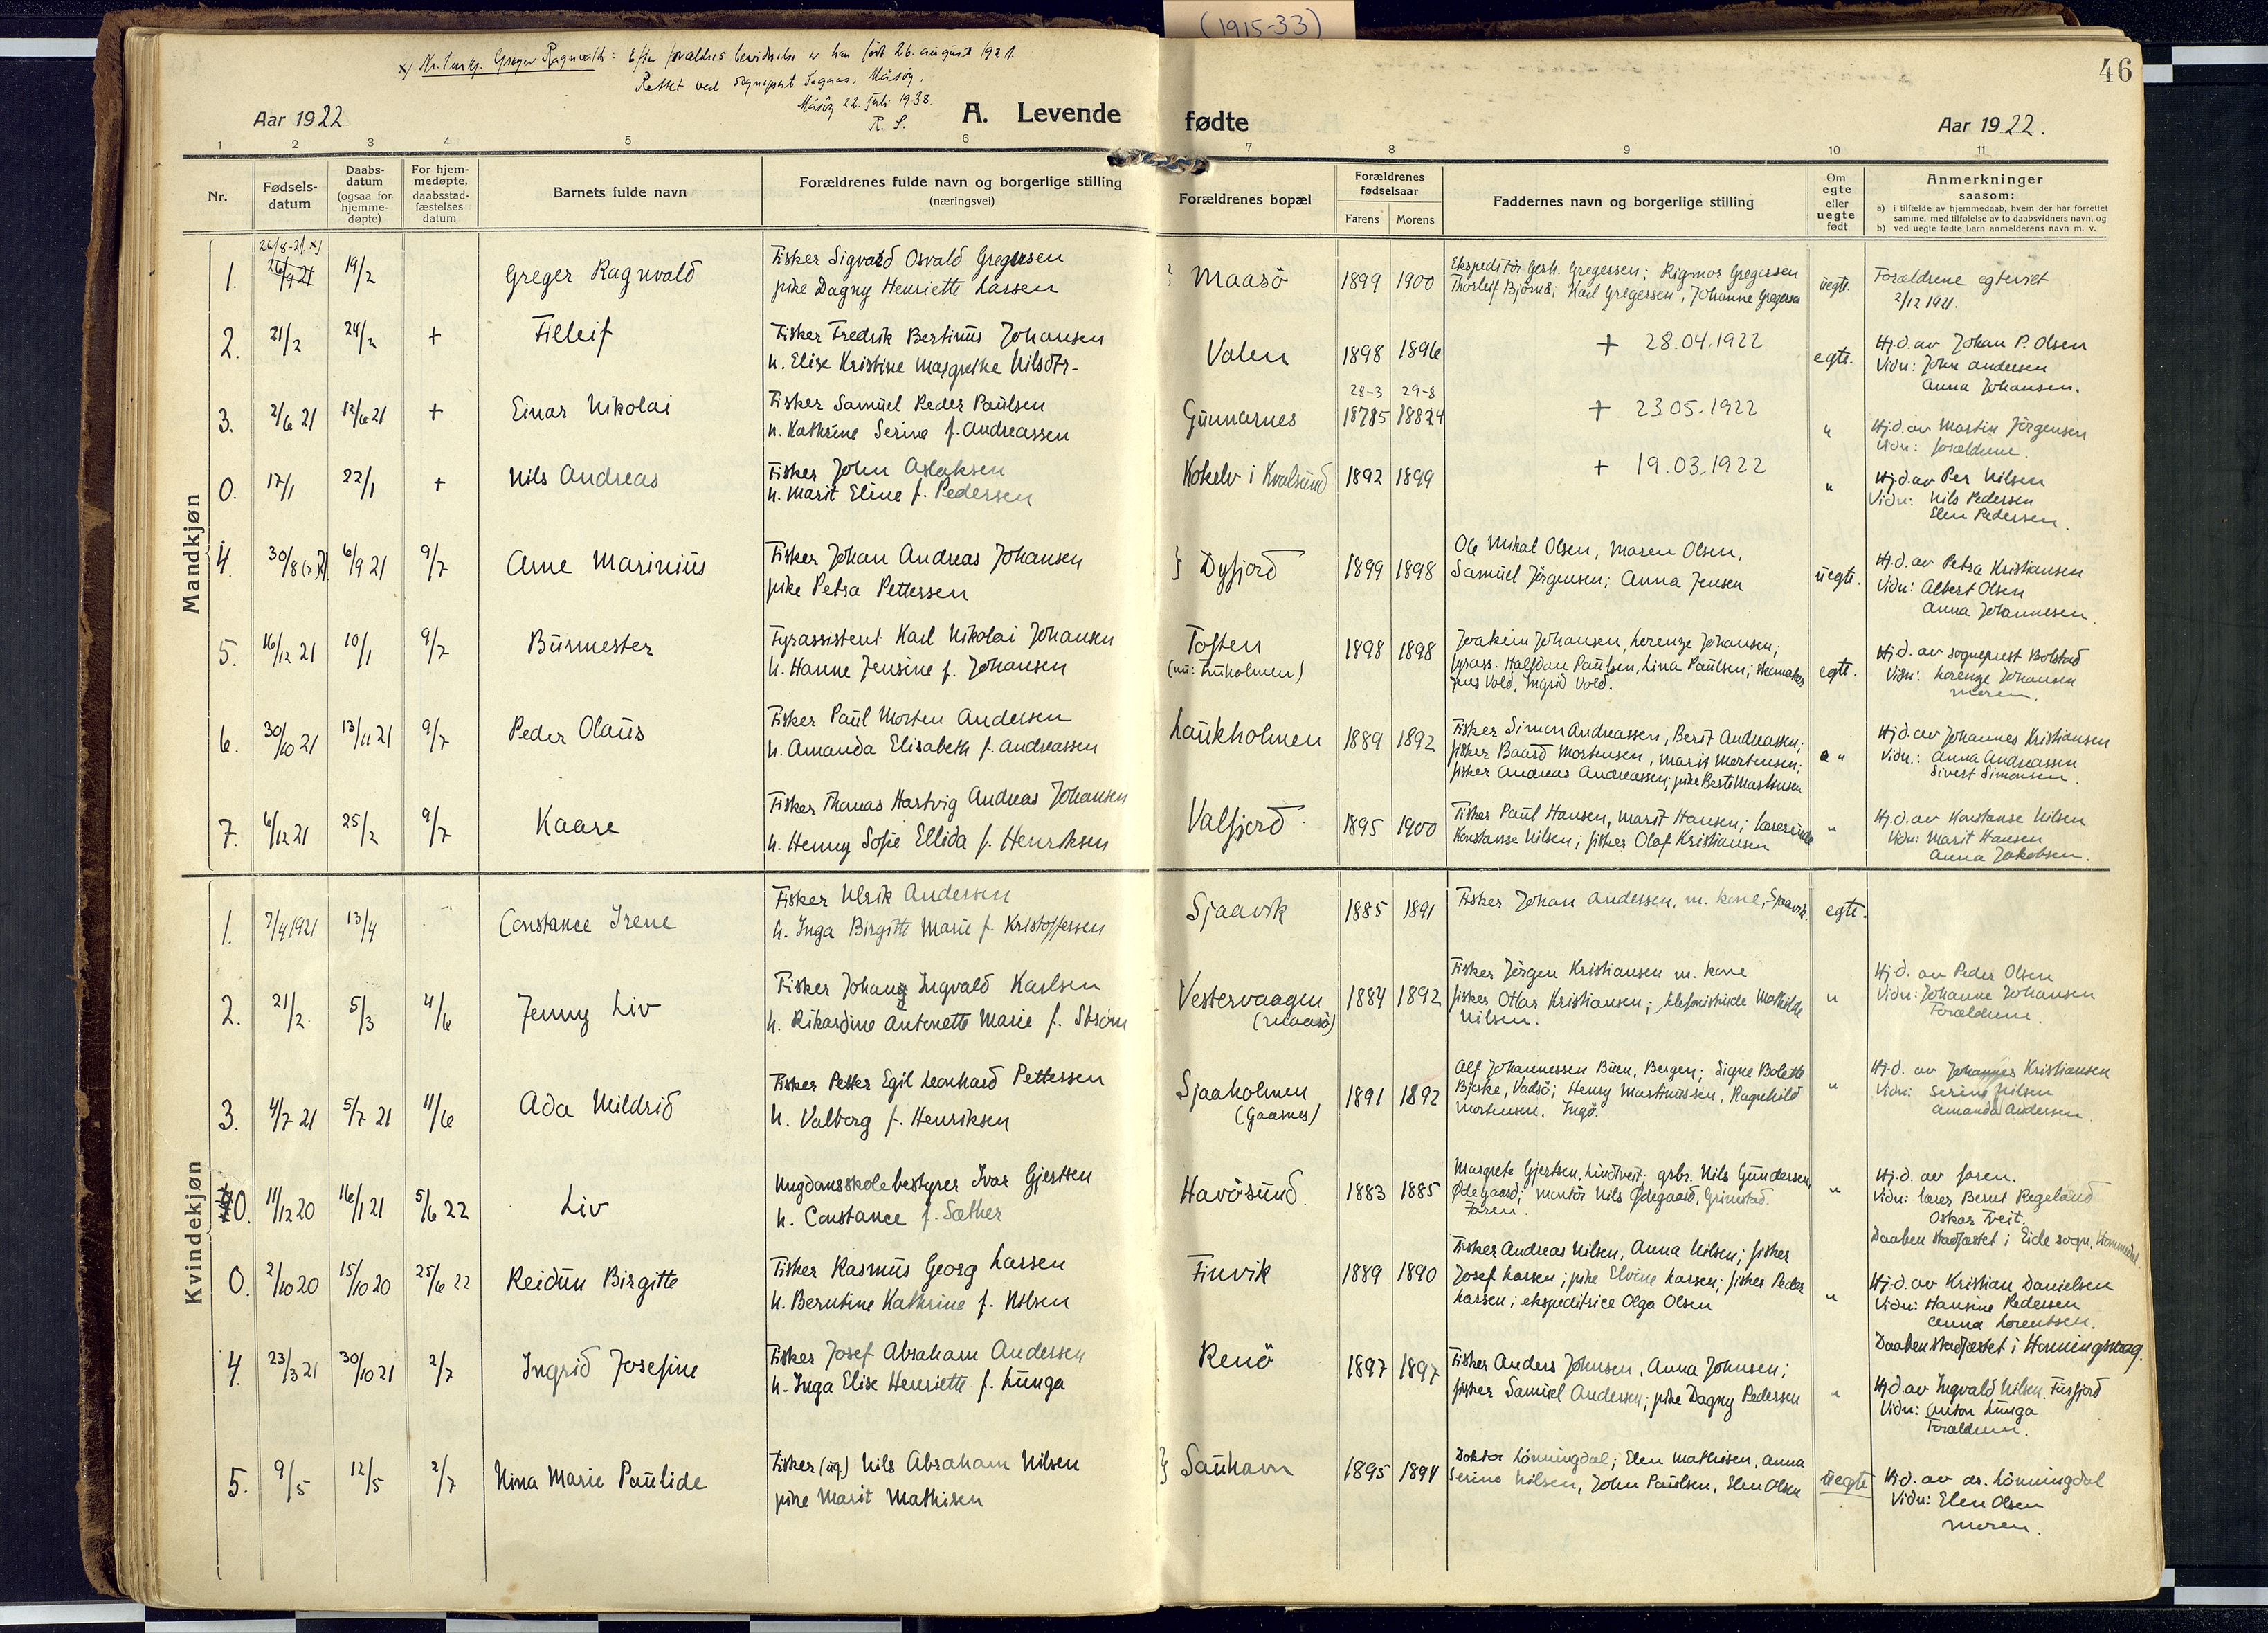 (1915-33)
46
x) Nr. 1 mkj. Greger Ragnvald: Efter forældres bevidnelse er han født 26. august 1921.
Rettet ved sogneprest Sagaas, Måsøy.
Måsøy 22. juli 1938.
R. S.
Aar 1922
A. Levende fødte
Aar 1922.
1 2 3 4 5 6 7 8 9 10 11
Nr.
Fødsels-
datum
Daabs-
datum
(ogsaa for
hjemme-
døpte)
For hjem-
medøpte,
daabsstad-
fæstelses
datum
Barnets fulde navn
Forældrenes fulde navn og borgerlige stilling
(næringsvei)
Forældrenes bopæl
Forældrenes
fødselsaar
Farens Morens
Faddernes navn og borgerlige stilling
Om
egte
eller
uegte
født
Anmerkninger
saasom:
a) i tilfælde av hjemmedaab, hvem der har forrettet
samme, med tilføielse av to daabsvidners navn, og
b) ved uegte fødte barn anmelderens navn m. v.
Mandkjøn
26/8-21 x)
1. 26/9 21 19/2 Greger Ragnvald
Fisker Sigvald Osvald Gregersen
pike Dagny Henriette Larsen
Maasö 1899 1900
Ekspeditör Gerh. Gregersen; Rigmor Gregersen
Thorleif Björnå; Karl Gregersen, Johanne Gregersen
uegte.
Forældrene egteviet
2/12 1921.
2. 21/2 24/2 + Filleif
Fisker Fredrik Bertinus Johansen
h. Elise Kristine Margrethe Nilsdtr-
Valen 1898 1896
+ 28.04.1922
egte.
Hj.d. av Johan P. Olsen
Vidn: John Andersen
Anna Johansen.
3. 2/6 21 12/6 21 + Einar Nikolai
Fisker Samuel Peder Paulsen
h. Kathrine Serine f. Andreassen
28-3 29-8
Gunnarnes
+ 23.05.1922
"
Hj.d. av Martin Jörgensen
Vidn: forældrene.
0. 17/1 22/1 + Nils Andreas
Fisker John Aslaksen
h. Marit Eline f. Pedersen
Kokelv i Kvalsund 1892 1899
+ 19.03.1922
"
Hj.d. av Per Nilsen
Vidn: Nils Pedersen
Elen Pedersen.
4. 30/8 6/9 21 9/7 Arne Marinius
Fisker Johan Andreas Johansen
pike Petra Pettersen
Dyfjord 1899 1898
Ole Mikal Olsen, Maren Olsen,
Samuel Jörgensen; Anna Jensen
uegte.
Hj.d. av Petra Kristiansen
Vidn: Albert Olsen
Anna Johannesen.
5. 16/12 21 10/1 9/7 Burmester
Fyrassistent Karl Nikolai Johansen
h. Hanne Jensine f. Johansen
Toften
(nu: Fruholmen)
1898 1898
Joakim Johansen, Lorenze Johansen;
fyrass. Halfdan Paulsen, Lina Paulsen; skomaker
Jens Vold, Ingrid Vold.
egte.
Hj.d. av sogneprest Bolstad
Vidn: Lorenze Johansen
moren.
6. 30/10 21 13/11 21 9/7 Peder Olaus
Fisker Paul Morten Andersen
h. Amanda Elisabeth f. Andreassen
Laukholmen 1889 1892
Fisker Simon Andreassen, Berit Andreassen;
fisker Baard Mortensen, Marit Mortensen;
fisker Andreas Andreassen; pike Berte Markusen
"
Hj.d. av Johannes Kristiansen
Vidn.: Anna Andreassen
Sivert Simonsen.
7. 6/12 21 25/2 9/7 Kaare
Fisker Thomas Hartvig Andreas Johansen
h. Henny Sofie Ellida f. Henriksen
Valfjord 1895 1900
Fisker Paul Hansen, Marit Hansen; lærerinde
Konstanse Nilsen; fisker Olaf Kristiansen
"
Hj.d. av Konstanse Nilsen
Vidn: Marit Hansen
Anna Jakobsen.
Kvindekjøn
1. 7/4 1921 13/4 Constance Irene
Fisker Ulrik Andersen
h. Inga Birgitte Marie f. Kristoffersen
Sjaavik 1885 1891
Fisker Johan Andersen, m. kone, Sjaavik.
egte.
2. 21/2 5/3 4/6 Jenny Liv
Fisker Johan Ingvald Karlsen
h. Rikardine Antonette Marie f. Ström
Vestervaagen
(Maasö)
1884 1892
Fisker Jörgen Kristiansen m. kone
fisker Ottar Kristiansen; telefonistinde Mathilde
Nilsen.
"
Hj.d. av Peder Olsen
Vidn: Johanne Johansen
Forældrene.
3. 4/7 21 5/7 21 11/6 Ada Mildrid
Fisker Petter Egil Leonhard Pettersen
h. Valborg f. Henriksen
Sjaaholmen
(Gaasnes)
1891 1892
Alf Johannessen Buen, Bergen; Signe Bolette
Bjerke, Vadsö; Henry Martinussen, Ragnhild
Mortensen, Ingö.
"
Hj.d. av Johannes Kristiansen
Vidn: Serine Nilsen
Amanda Andersen.
0. 11/12 20 16/1 21 5/6 22 Liv
Ungdomsskolebestyrer Ivar Gjertsen
h. Constance f. Sæther
Havösund. 1883 1885
Margrete Gjertsen, Lindtveit; grbr. Nils Gundersen,
Ødegaard; montör Nils Ødegaard, Grimstad.
Faren.
"
Hj.d. av faren.
Vidn: lærer Bernt Regeland
Oskar Tveit.
Daaben stadfæstet i Eide sogn,
0. 2/10 20 15/10 20 25/6 22 Reidun Birgitte
Fisker Rasmus Georg Larsen
h. Berntine Kathrine f. Nilsen
Finvik 1889 1890
Fisker Andreas Nilsen, Anna Nilsen; fisker
Josef Larsen; pike Elvine Larsen; fisker Peder
Larsen; ekspeditrice Olga Olsen
"
Hj.d. av Kristian Danielsen
Vidn: Hansine Pedersen
Anna Lorentsen.
Daaben stadfæstet i Honningsvaag.
4. 23/3 21 30/10 21 2/7 Ingrid Josefine
Fisker Josef Abraham Andersen
h. Inga Elise Henriette f. Lunga
Renö 1897 1897
Fisker Anders Johnsen, Anna Johnsen;
fisker Samuel Andersen; pike Dagny Pedersen
"
Hj.d av Ingvald Nilsen, Tufjord
Vidn: Anton Lunga
Forældrene.
5. 9/5 12/5 2/7 Nina Marie Paulide
Fisker (ug.) Nils Abraham Nilsen
pike Marit Mathisen
Sauhavn 1895 1894
Doktor Lönningdal; Elen Mathisen, Anna
Serine Nilsen, John Paulsen, Elen Olsen
uegte
Hj.d. av dr. Lönningdal
Vidn: Elen Olsen
moren.